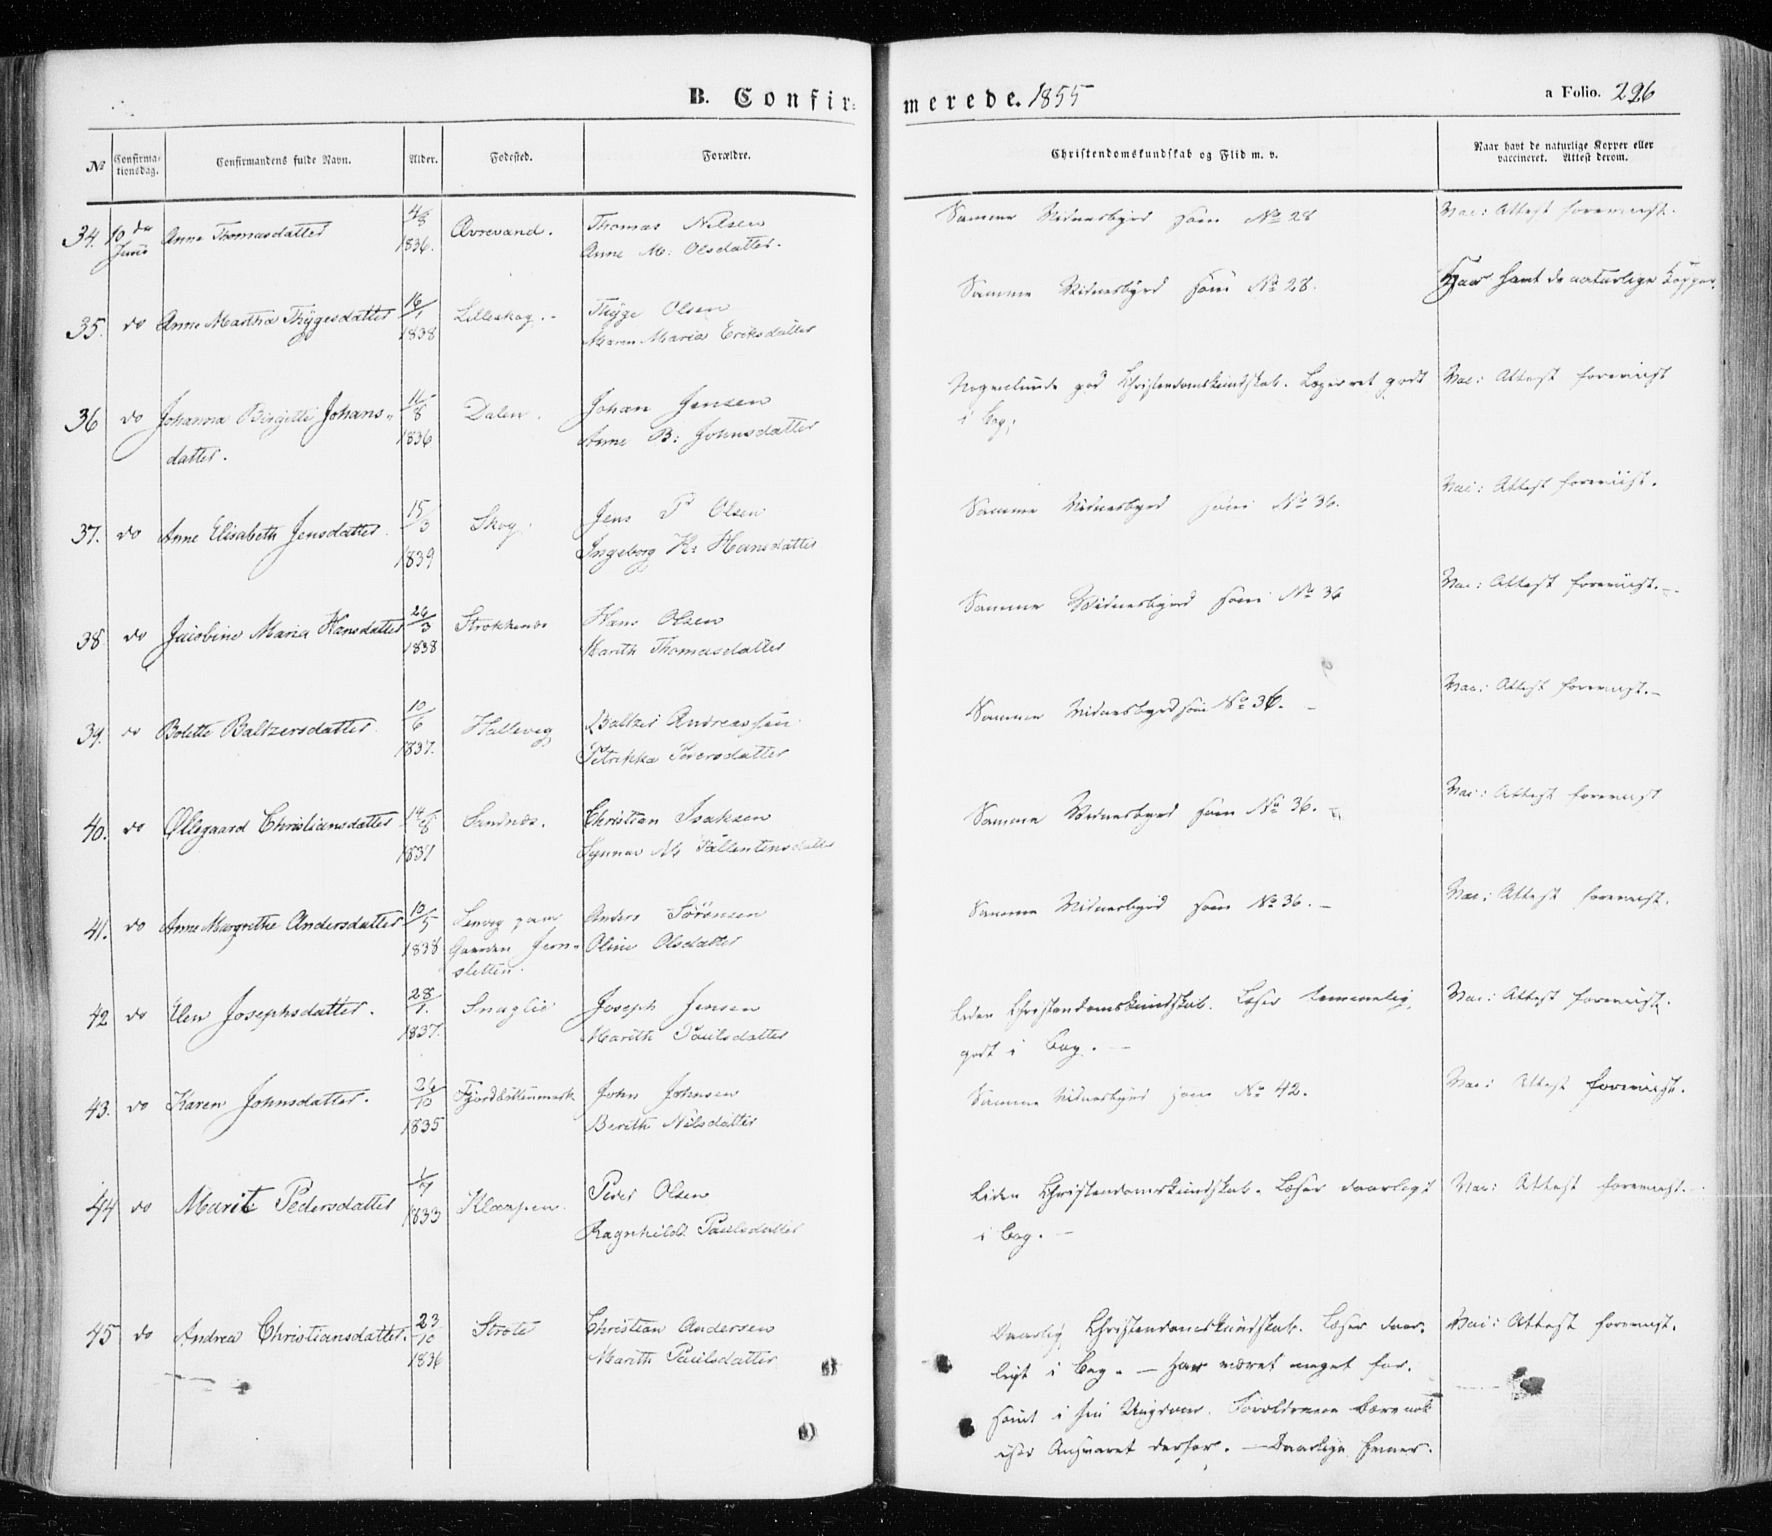 B. Confirmerede. 1855
a Folio. 296
No Confirmationsdag. Confirmandens fulde Navn. Alder. Fødested. Forældre. Christendomskundskab og Flid m. v. Naar havt de naturlige Kopper eller vaccineret. Attest derom.
34. 10de Juni Anne Thomasdatter 4/8 1836. Øvrevand. Thomas Nilsen
Anne M. Olsdatter. Samme Vidnesbyrd som No 28 Vac: Attest foreviist.
35. do Anne Martha Thygesdatter 16/1 1838 Lilleskog. Thyge Olsen
Maren Maria Eriksdatter Samme Vidnesbyrd som No 28. Har havt de naturlige Kopper.
36 do Johanna Birgitte Johans-
datter. 1836 Dalen. Johan Jensen
Anne B: Johnsdatter Nogenlunde god Christendomskundskab. Læser ret godt
i Bog. Vac: Attest foreviist
37. do Anne Elisabeth Jensdatter 15/3 1839 Skog. Jens P Olsen
Ingeborg K: Hansdatter Samme Vidnesbyrd som No 36. Vac: Attest foreviist.
38 do Jacobine Maria Hansdatter 26/3 1838 Hans Olsen
Marith Thomasdatter Samme Vidnesbyrd som No 36 Vac: Attest foreviist.
39. do Bolette Baltzersdatter 10/6 1837. Halleveg Baltzer Andreassen
Petrikka Iversdatter Samme Vidnesbyrd som No 36. Vac: Attest foreviist.
40. do Ollegaard Christiansdatter 14/8 Sandnæs. Christian Isaksen
Synnev Samme Vidnesbyrd som No 36. Vac: Attest foreviist
41. do Anne Margrethe Andersdatter 10/5 1838 Lenvig
Gaarden Jern-
sletten. Anders Sørensen
Oline Olsdatter Samme Vidnesbyrd som No 36. Vac: Attest foreviist.
42 do Elen Josephsdatter. 28/1. 1837. Snuglie Joseph Jensen
Marith Paulsdatter Liden Christendomskundskab. Læser temmelig
godt i Bog. Vac: Attest foreviist.
43. do Karen Johnsdatter. 26/10 1835 Fjordbottenmark John Johnsen
Berith Nilsdatter Samme Vidnesbyrd som No 42. Vac: Attest foreviist.
44 do Marit Pedersdatter 1833 Klæpen. Peder Olsen
Ragnhild Paulsdatter Liden Christendomskundskab. Læser daarligt
i Bog. Vac: Attest foreviist.
45 do Andrea Christiansdatter. 23/10 1836 Christian Andersen
Marith Paulsdatter Daarlig Christendomskundskab. Læser daar-
ligt i Bog. — Har været meget for-
sømt i sin Ungdom. Forældrene bære nok
Ansvaret derfor. — Daarlige Evner. Vac: Attest foreviist.